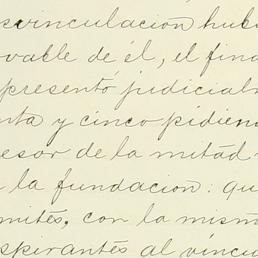 svinculacion hub
ovable de él, el fina
presentó judicial
nta y cinco pidien
esor de la mitad
la fundacion: qu
mites, con la mism
spirantes al víncu